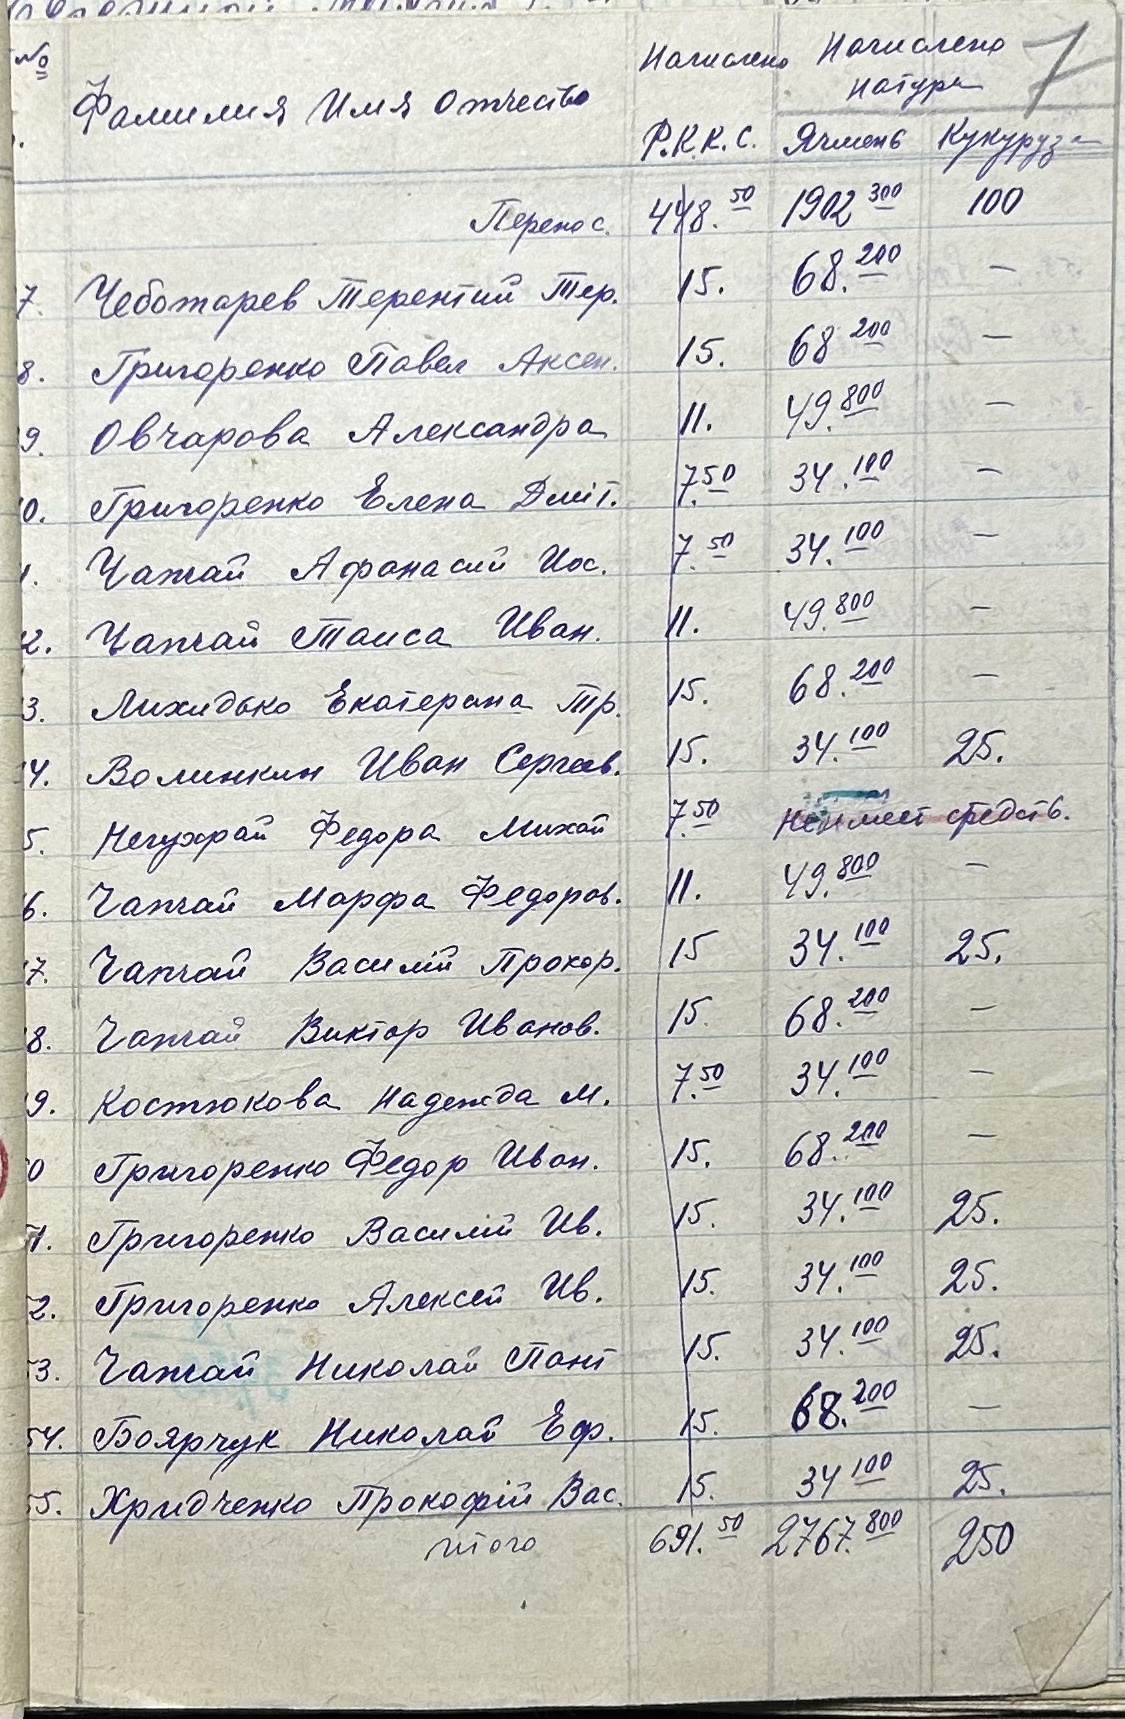 № Фамилия Имя Отчество Начислено Начислено 7
натура
Р.К.К.С. Ячмень Кукуруза
Перенос. 448.50 1902 300 100
7. Чеботарев Терентий Тер. 15. 68.200 —
8. Григоренко Павел Аксен. 15. 68 200 —
9. Овчарова Александра 11. 49.800 —
0. Григоренко Елена Дміт. 7.50 34.100 —
1. Чапчай Афанасий Иос. 7.50 34.100 —
2. Чапчай Таиса Иван. 11. 49.800 —
3. Лихидько Екатерина Тр. 15. 68.200 —
4. Волинкин Иван Сергеев. 15. 34.100 25.
5. Нечухрай Федора Михай 7.50 Не имеет средств.
6. Чапчай Марфа Федоров. 11. 49.800 —
7. Чапчай Василий Прохор. 15 34.100 25.
8. Чапчай Виктор Иванов. 15. 68.200 —
9. Костюкова Надежда М. 7.50 34.100 —
50 Григоренко Федор Иван. 15. 68.200 —
51. Григоренко Василий Ив. 15. 34.100 25.
52. Григоренко Алексей Ив. 15. 34.100 25.
53. Чапчай Николай Пант 15. 34.100 25.
54. Боярчук Николай Еф. 15. 68.200 —
55. Хридченко Прокофий Вас. 15. 34 100 25.
итого 691.50 2767.800 250